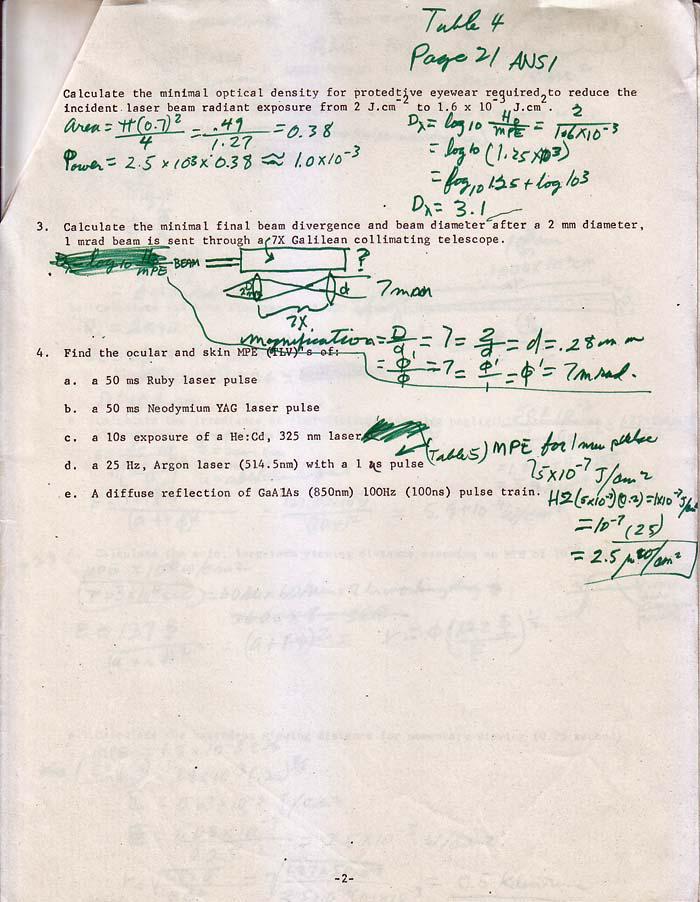 Table 4
Page 21 ANSI
Calculate the minimal optical density for protedtive eyewear required to reduce the
incident laser beam radiant exposure from 2 J.cm⁻² to 1.6 x 10⁻³ J.cm⁻².
Area = π(0.7)²/4 = .49/1.27 = 0.38
Power = 2.5 × 10³ × 0.38 ≈ 1.0×10⁻³
Dλ = log10 H₀/MPE = 2/1.6×10⁻³
= log10 (1.25×10³)
= log₁₀ 1.25 + log 10³
Dλ = 3.1
3. Calculate the minimal final beam divergence and beam diameter after a 2 mm diameter,
1 mrad beam is sent through a 7X Galilean collimating telescope.
log10 H₀/MPE
BEAM ?
d 7mrad
7X
magnification = D/d = 7 = 2/d = d = .28 mm
= Φ'/Φ = 7 = Φ'/1 = Φ' = 7mrad.
4. Find the ocular and skin MPE (TLV)'s of:
a. a 50 ms Ruby laser pulse
b. a 50 ms Neodymium YAG laser pulse
c. a 10s exposure of a He:Cd, 325 nm laser
d. a 25 Hz, Argon laser (514.5nm) with a 1 s pulse
(Table 5) MPE for 1 pulse
5×10⁻⁷ J/cm²
e. A diffuse reflection of GaAlAs (850nm) 100Hz (100ns) pulse train.
(5×10⁻⁷)(0.2) = 1×10⁻⁷ J/cm²
= 10⁻⁷ (25)
= 2.5 /cm²
-2-